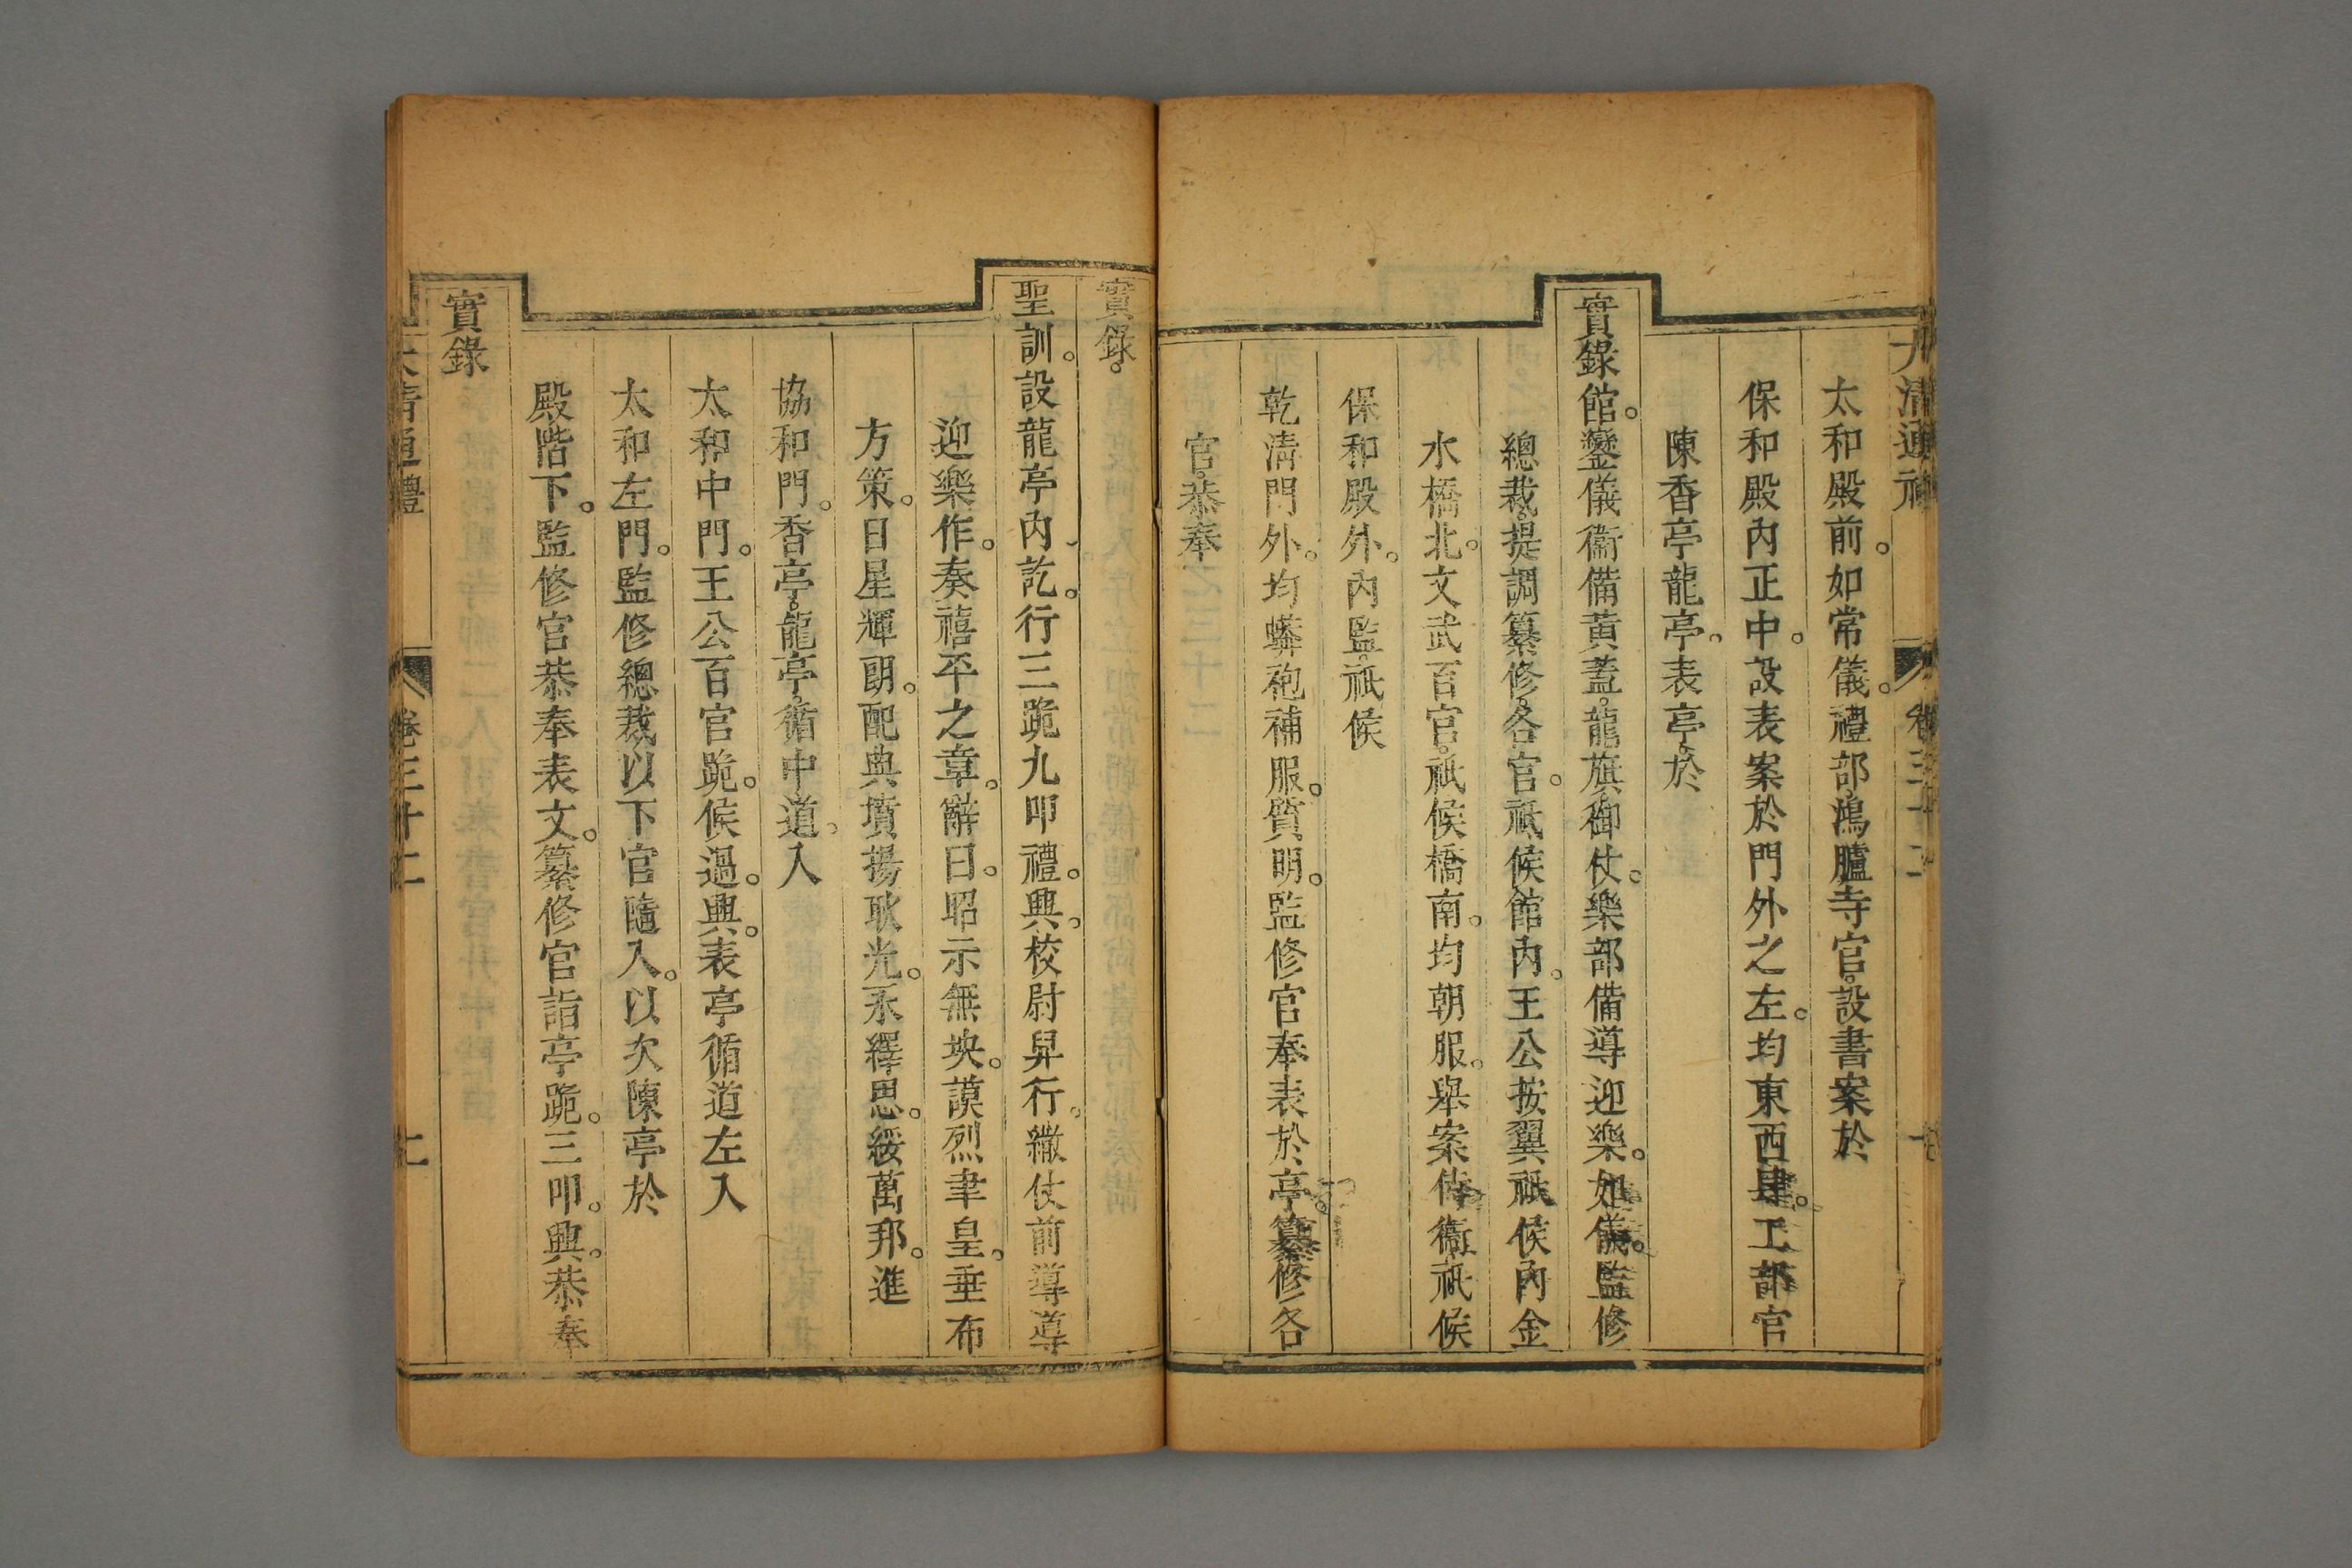 大清通禮 卷三十二
太和殿前。如常儀。禮部鴻臚寺官。設書案於
保和殿內正中。設表案於門外之左。均東西肆。工部官
陳香亭龍亭。表亭。於
實錄館。鑾儀衞備黃蓋。龍旗御仗。樂部備導迎樂。如儀。監修
總裁。提調纂修。各官。祗候館內。王公按翼祗候內金
水橋北。文武百官。祗候橋南。均朝服。舉案侍衞祗候
保和殿外。內監。祗候
乾淸門外。均蟒袍補服。質明。監修官奉表於亭。纂修各
官。恭奉
實錄。
聖訓。設龍亭內訖。行三跪九叩禮。興。校尉舁行。繖仗前導導
迎樂作。奏禧平之章。辭曰。昭示無垠。謨烈聿皇。垂布
方策。日星輝朗。配典墳揚耿光。丕繹思。綏萬邦。進
協和門。香亭。龍亭。循中道。入
太和中門。王公百官跪。候過。興。表亭循道左入
太和左門。監修總裁以下官隨入。以次陳亭於
殿階下。監修官恭奉表文。纂修官詣亭跪。三叩。興。恭奉
實錄
大清通禮 卷三十二 七